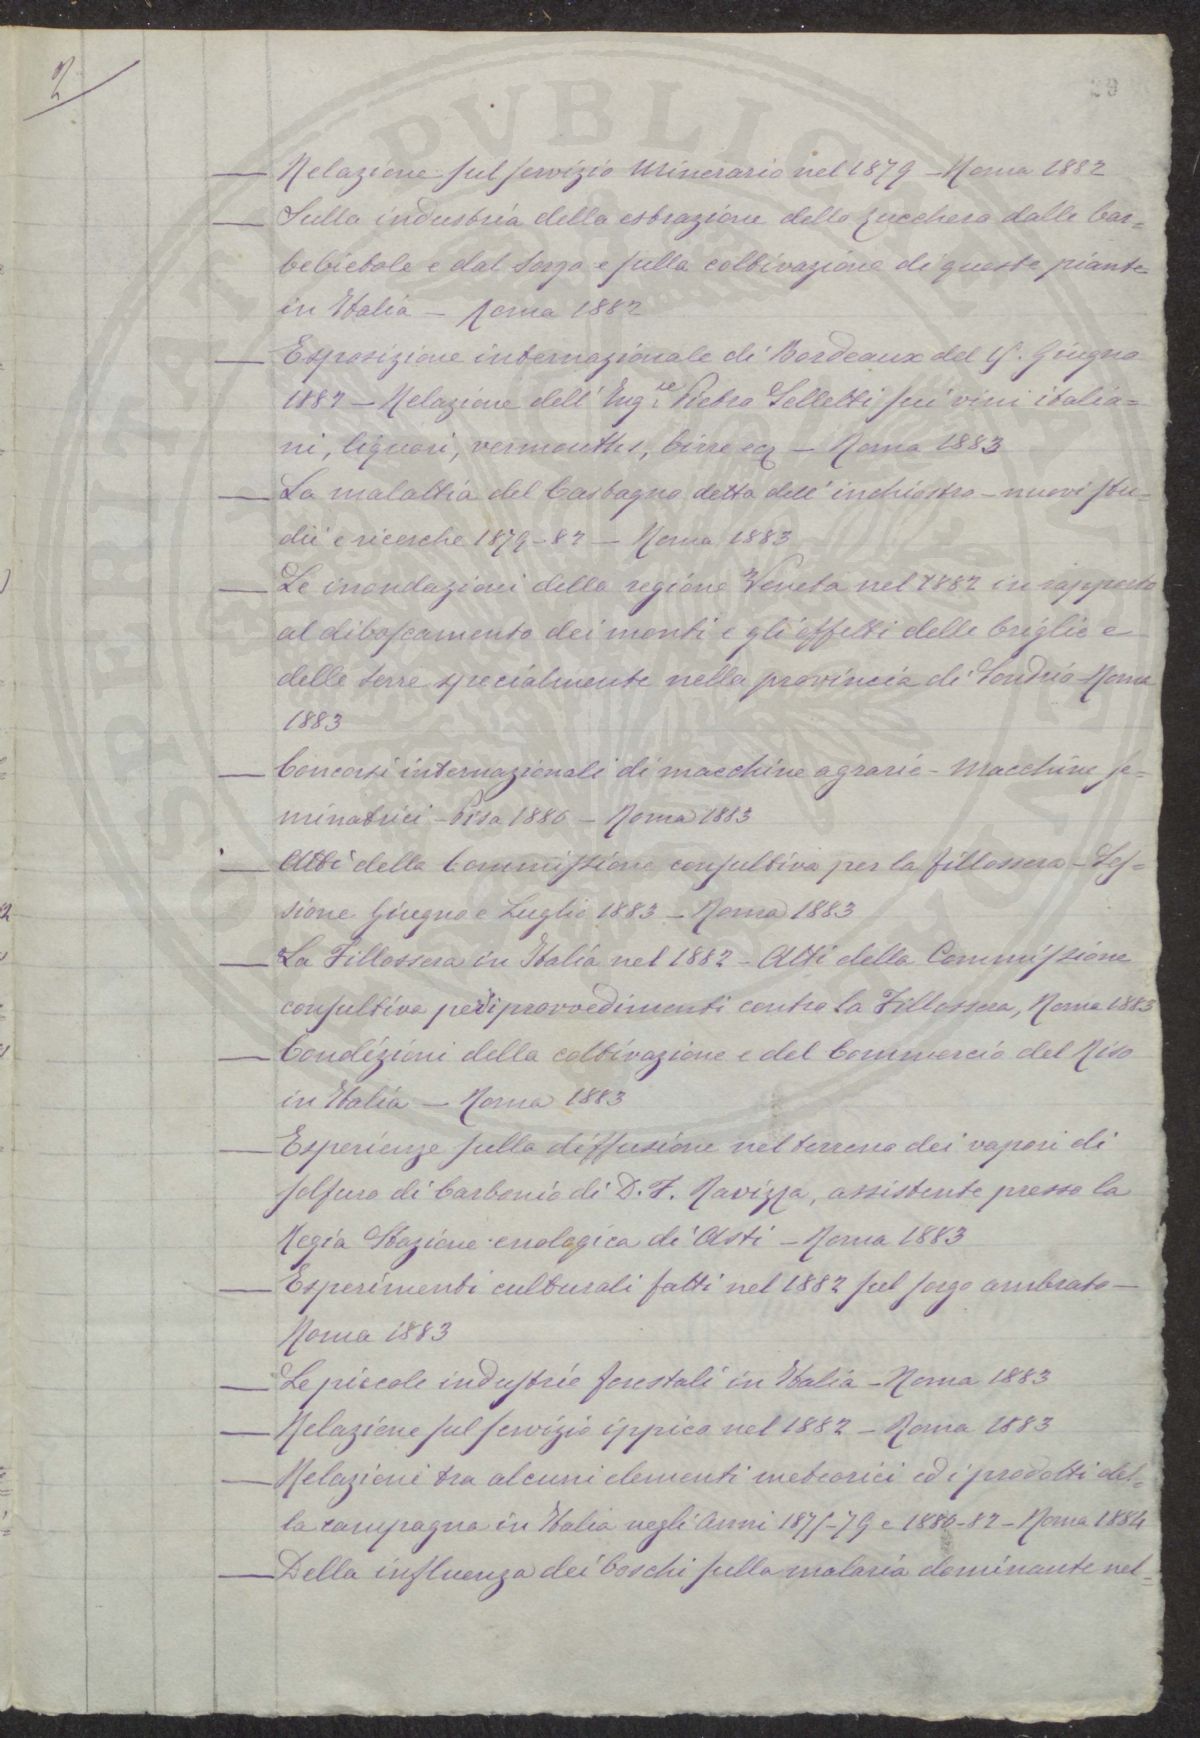 2
29
— Relazione sul servizio Minerario nel 1879 – Roma 1882
— Sulla industria della estrazione dello zucchero dalle bar=
bebietole e dal Sorgo e sulla coltivazione di queste piante
in Italia – Roma 1882
— Esposizione internazionale di Bordeaux del 1º. Giugno
1882 – Relazione dell'Ing.re Pietro Selletti sui vini italia=
ni, liquori, vermouths, birre ecc – Roma 1883
— La malattia del Castagno detta dell'inchiostro – nuovi stu=
dii e ricerche 1879-82 – Roma 1883
— Le inondazioni della regione Veneta nel 1882 in rapporto
al diboscamento dei monti e gli effetti delle briglie e
delle serre specialmente nella provincia di Sondrio – Roma
1883
— Concorsi internazionali di macchine agrarie – Macchine se=
minatrici – Pisa 1880 – Roma 1883
— Atti della Commissione consultiva per la fillossera – Ses=
sione Giugno e Luglio 1883 – Roma 1883
— La Fillossera in Italia nel 1882 – Atti della Commissione
consultiva pei provvedimenti contro la Fillossera, Roma 1883
— Condizioni della coltivazione e del Commercio del Riso
in Italia – Roma 1883
— Esperienze sulla diffusione nel terreno dei vapori di
solfuro di Carbonio di D. F. Ravizza, assistente presso la
Regia Stazione enologica di Asti – Roma 1883
— Esperimenti culturali fatti nel 1882 sul sorgo ambrato –
Roma 1883
— Le piccole industrie forestali in Italia – Roma 1883
— Relazione sul servizio ippico nel 1882 – Roma 1883
— Relazioni tra alcuni elementi meteorici ed i prodotti del=
la campagna in Italia negli Anni 1875-79 e 1880-82 – Roma 1884
— Della influenza dei boschi sulla malaria dominante nel=